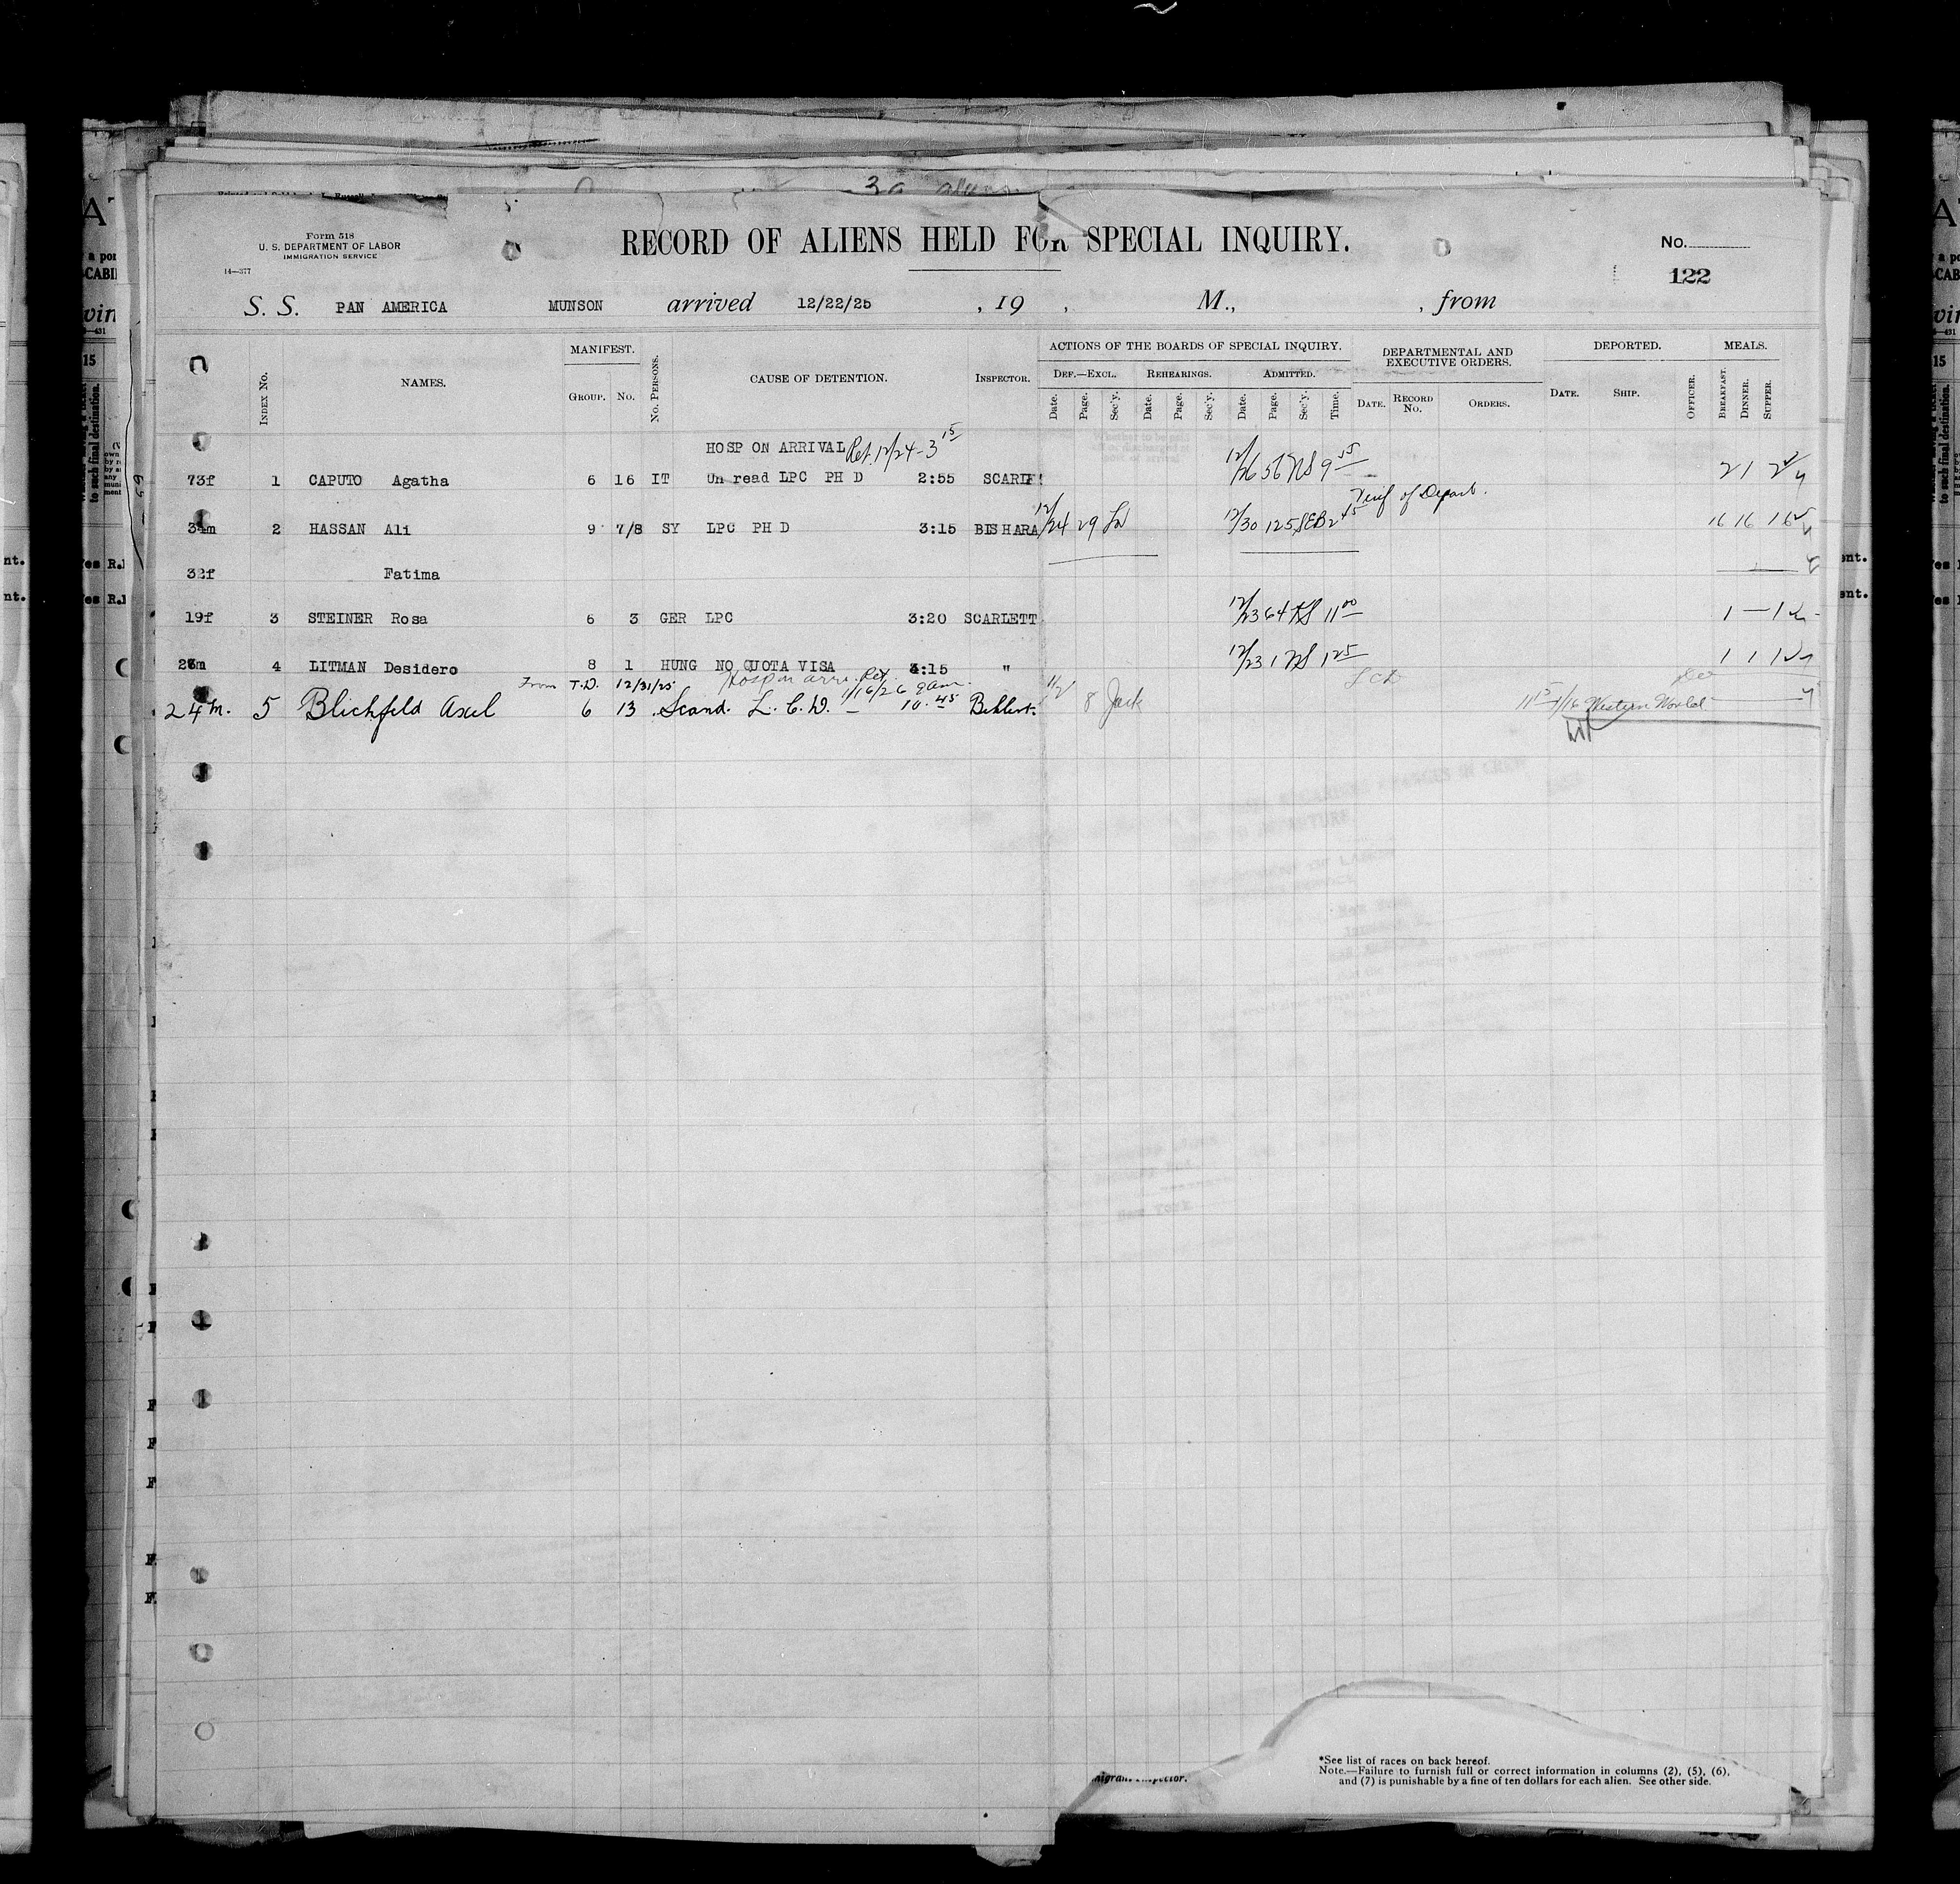 Form 518
U. S. DEPARTMENT OF LABOR
IMMIGRATION SERVICE
14—377
RECORD OF ALIENS HELD FOR SPECIAL INQUIRY.
No.
122
S. S. PAN AMERICA MUNSON arrived 12/22/25 , 19 , M., , from
INDEX No. NAMES. MANIFEST. GROUP. No. No. PERSONS. CAUSE OF DETENTION. INSPECTOR. ACTIONS OF THE BOARDS OF SPECIAL INQUIRY. DEF.—EXCL. Date. Page. Sec'y. REHEARINGS. Date. Page. Sec'y. ADMITTED. Date. Page. Sec'y. Time. DEPARTMENTAL AND EXECUTIVE ORDERS. DATE. RECORD No. ORDERS. DEPORTED. DATE. SHIP. OFFICER. MEALS. BREAKFAST. DINNER. SUPPER.
HOSP ON ARRIVAL Ret. 12/24-3 15
73f 1 CAPUTO Agatha 6 16 IT Un read LPC PH D 2:55 SCARLE 12/26 56 9 55 2 1 2
34m 2 HASSAN Ali 9 7/8 SY LPC PH D 3:15 BISHARA 12/24 29 12/30 125 SEB 2 45 of Depart. 16 16 16
32f Fatima
19f 3 STEINER Rosa 6 3 GER LPC 3:20 SCARLETT 12/23 64 11 00 1 — 1
26m 4 LITMAN Desidero 8 1 HUNG NO QUOTA VISA 4:15 " 12/23 1 1 25 1 1 1
From T.D. 12/31/25 Hosp on arri. Ret. 1/16/26 9 am.
24m. 5 Blichfeld Axel 6 13 Scand. L. C. D. — 10.45 Behlert. 1/2 8 Jack 1/16 Western World
migrant Inspector.
*See list of races on back hereof.
Note.—Failure to furnish full or correct information in columns (2), (5), (6),
and (7) is punishable by a fine of ten dollars for each alien. See other side.